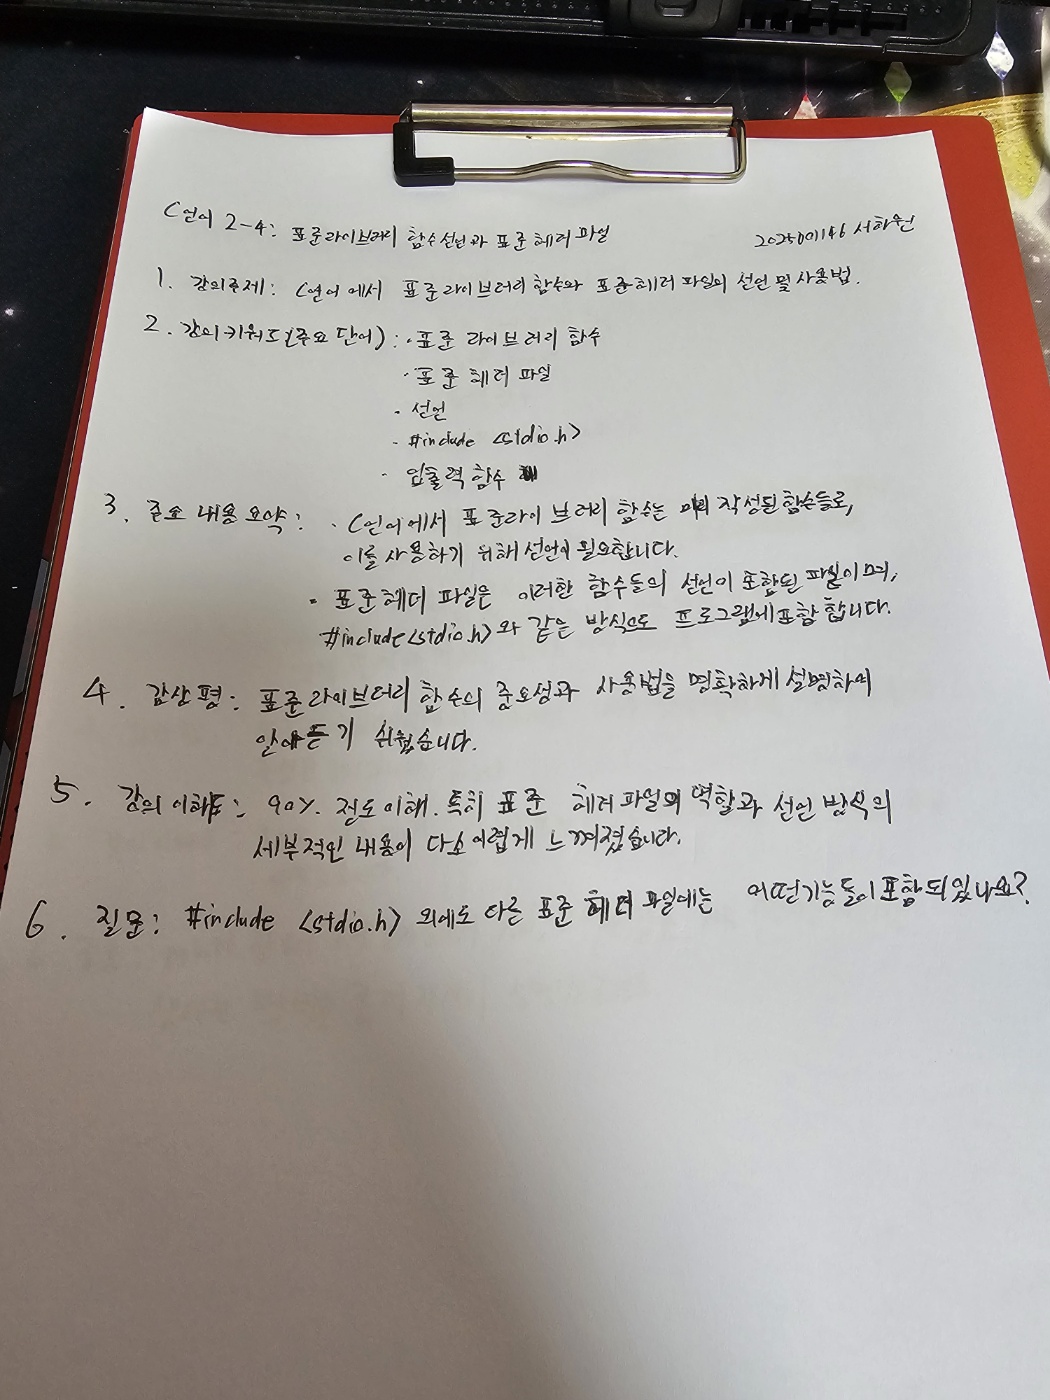 C언어 2-4: 표준라이브러리 함수선언과 표준 헤더 파일
202500146 서하원
1. 강의주제: C언어에서 표준라이브러리 함수와 표준헤더 파일의 선언 및 사용법.
2. 강의키워드(주요 단어): · 표준 라이브러리 함수
· 표준 헤더 파일
· 선언
· #include <stdio.h>
· 입출력 함수
3. 주요 내용 요약: · C언어에서 표준라이브러리 함수는 미리 작성된 함수들로,
이를 사용하기 위해 선언이 필요합니다.
· 표준헤더 파일은 이러한 함수들의 선언이 포함된 파일이며,
#include<stdio.h>와 같은 방식으로 프로그램에 포함합니다.
4. 감상평: 표준라이브러리 함수의 중요성과 사용법을 명확하게 설명하여
알아듣기 쉬웠습니다.
5. 강의 이해도: 90% 정도 이해. 특히 표준 헤더파일의 역할과 선언 방식의
세부적인 내용이 다소 어렵게 느껴졌습니다.
6. 질문: #include <stdio.h> 외에도 다른 표준 헤더 파일에는 어떤기능들이 포함되있나요?